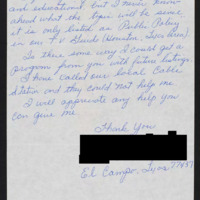 and educational but I never know
ahead what the topic will be since
it is only listed as Public Policy
in our T.V. Guide (Houston, Texas Area).
Is there some way I could get a
program from you with future listings.
I have called our local Cable
Station and they could not help me.
I will appreciate any help you
can give me.
Thank You
El Campo, Texas 77437